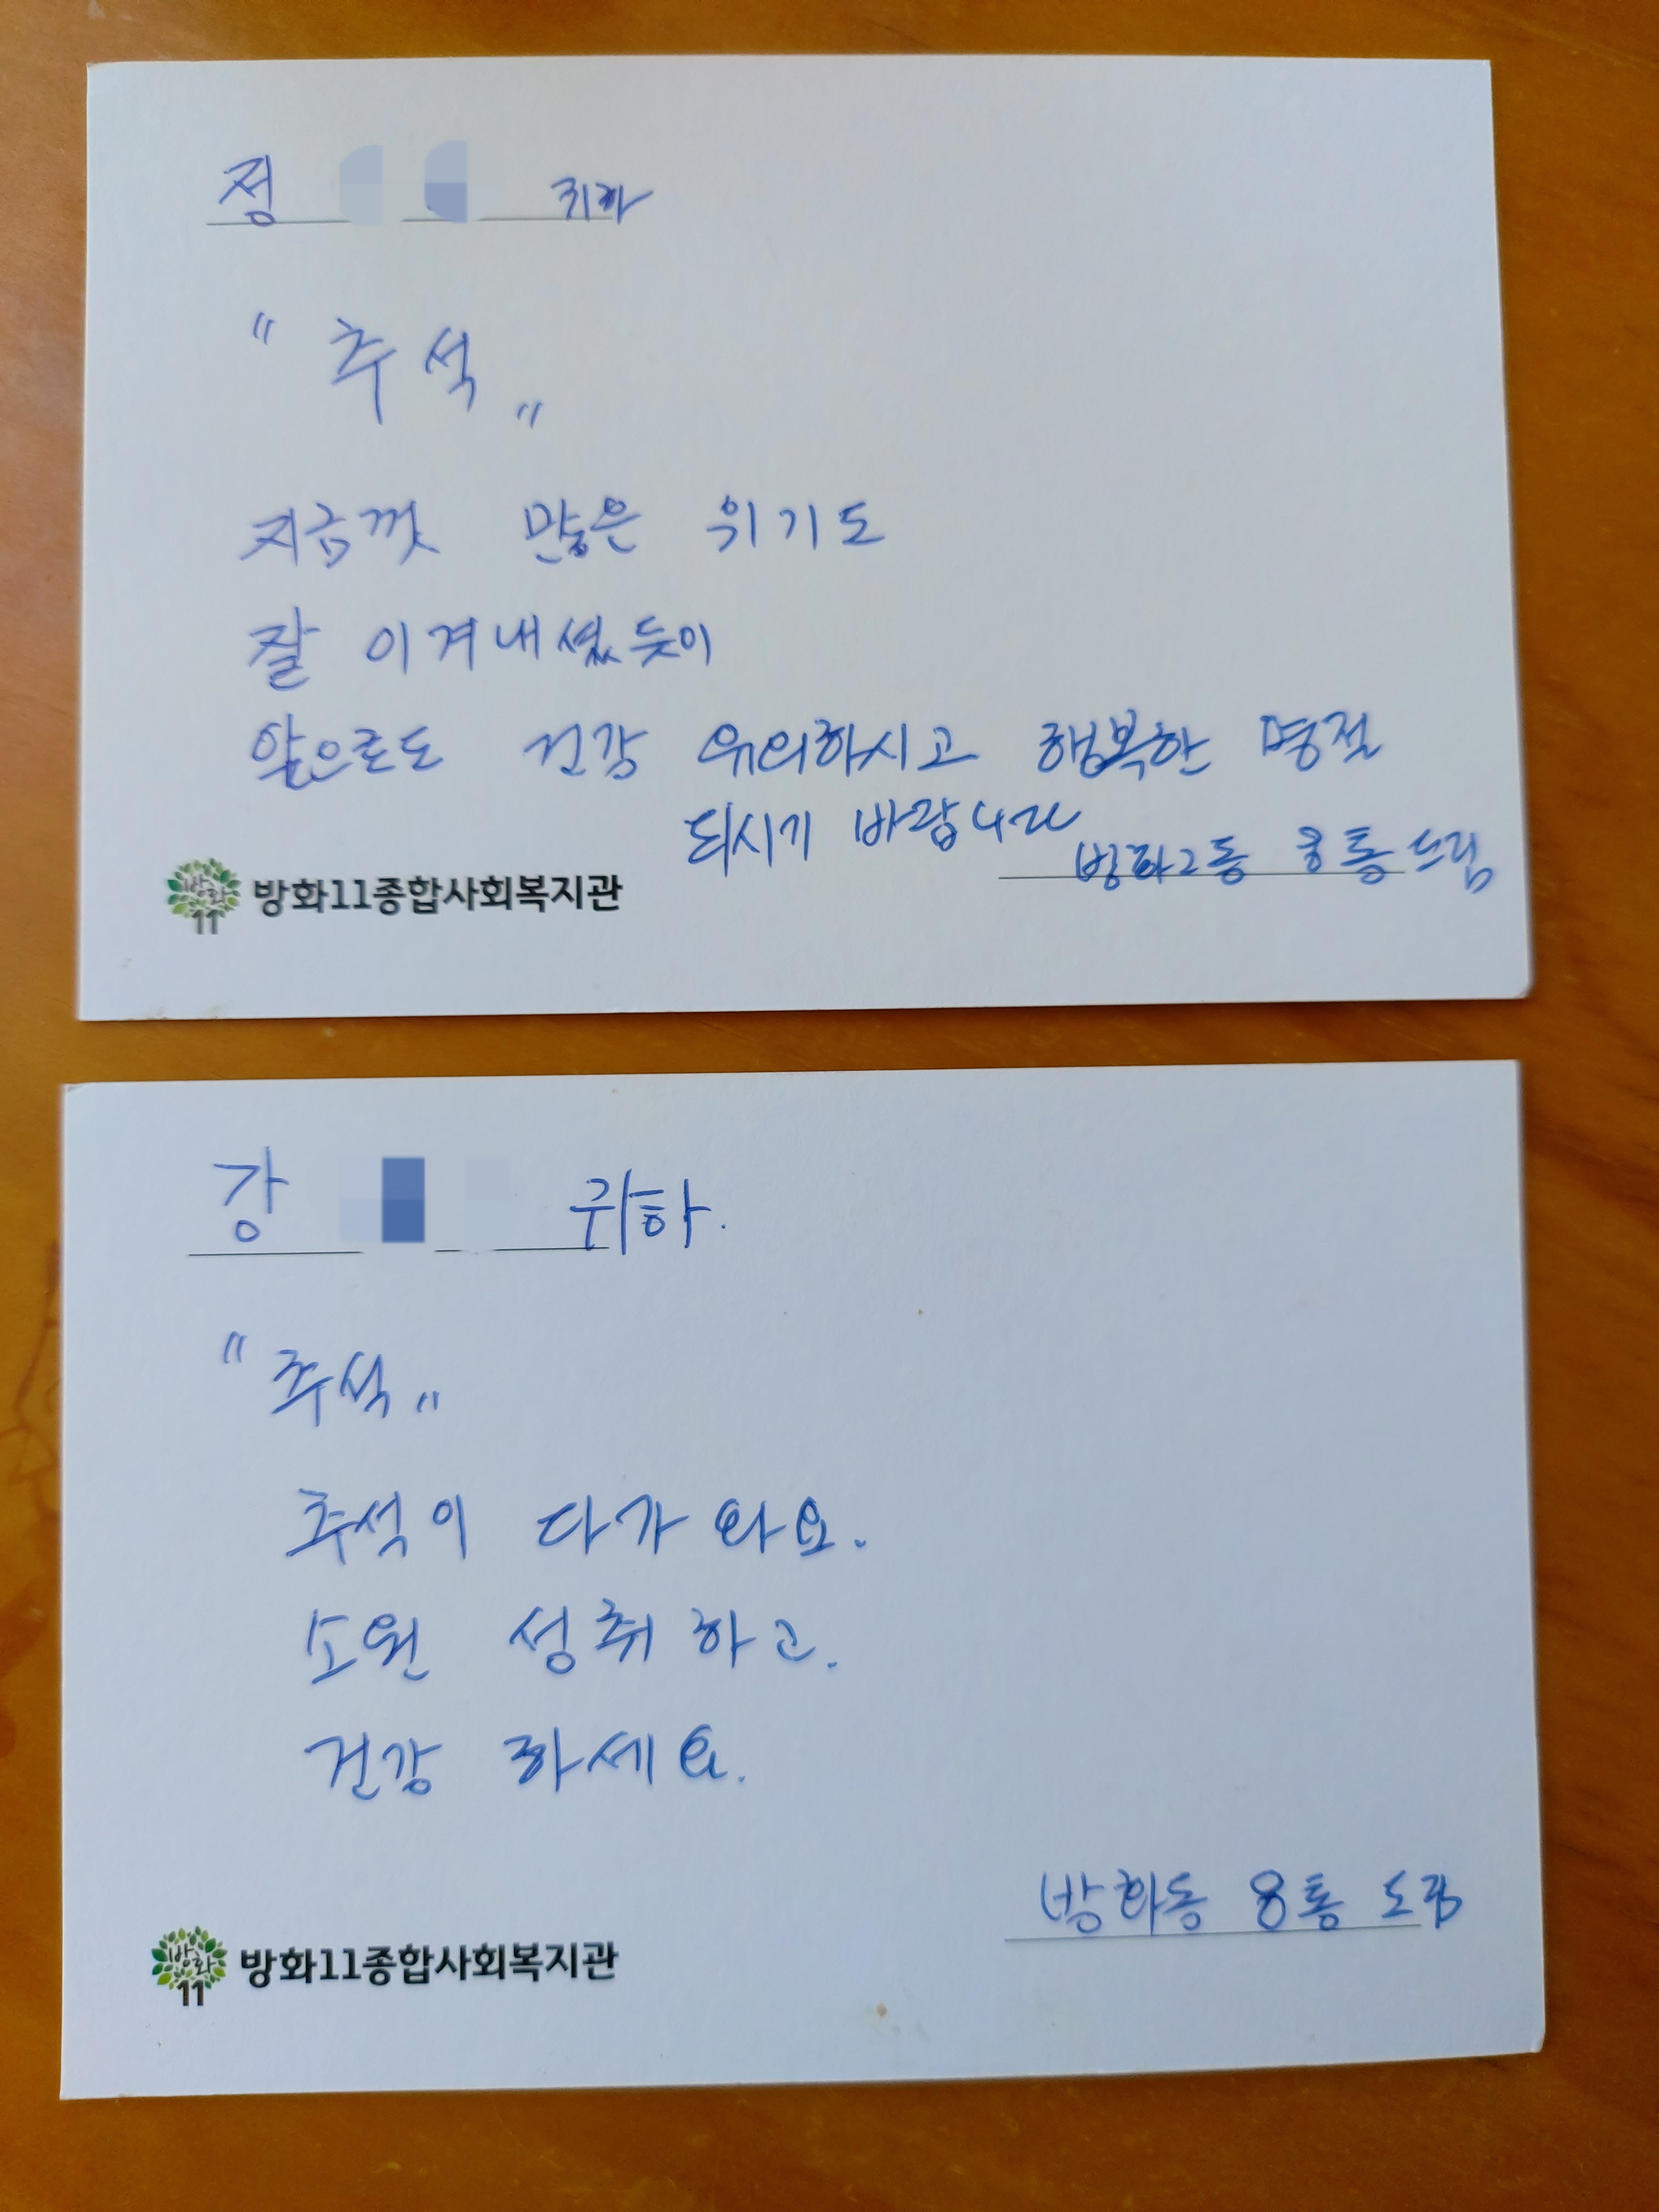 정 귀하
" 추석 "
지금껏 많은 위기도
잘 이겨내셨듯이
앞으로도 건강 유의하시고 행복한 명절
되시기 바랍니다
방화2동 8통 드림
방화
11
방화11종합사회복지관
강 귀하.
" 추석 "
추석이 다가 와요.
소원 성취 하고.
건강 하세요.
방화동 8통 드림
방화
11
방화11종합사회복지관